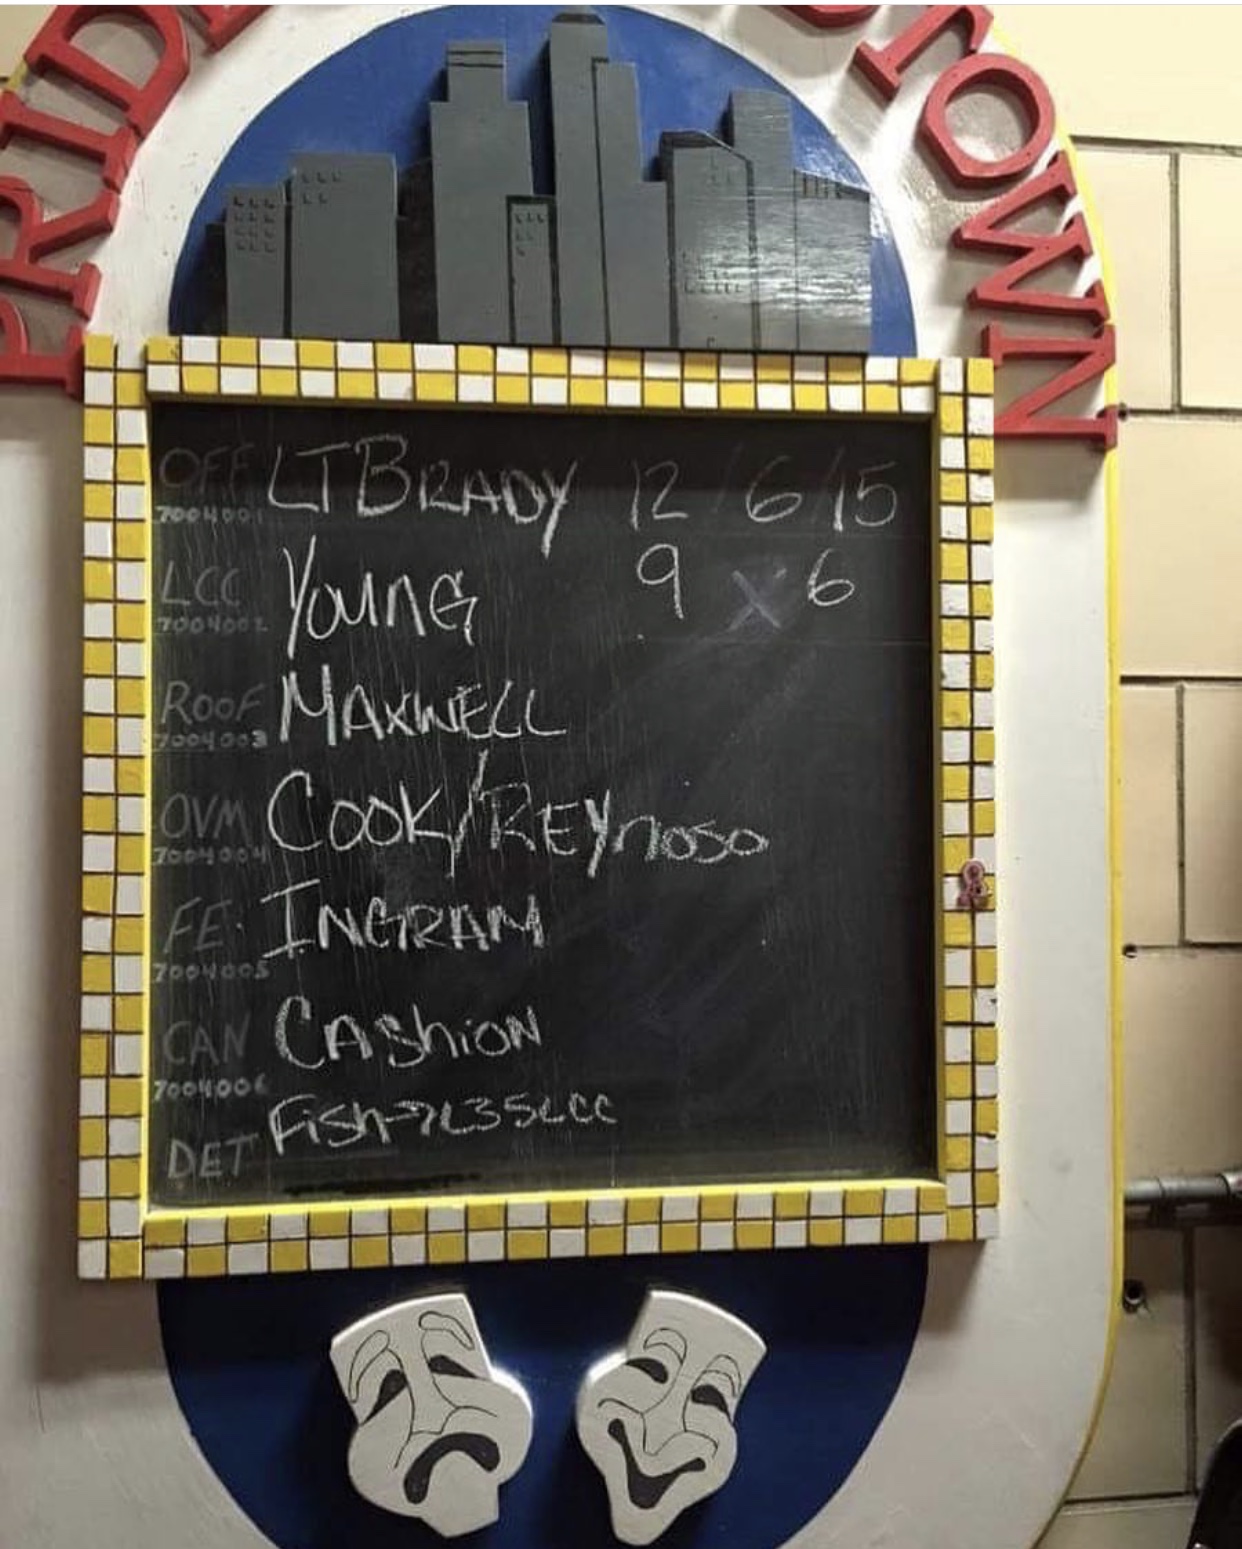 PRIDE
TOWN
OFF LT BRADY 12 / 6 / 15
7004001
LCC YOUNG 9 X 6
7004002
ROOF MAXWELL
7004003
OVM COOK/REYNOSO
7004004
FE INGRAM
7004005
CAN CASHION
7004006
DET Fish→L35LCC